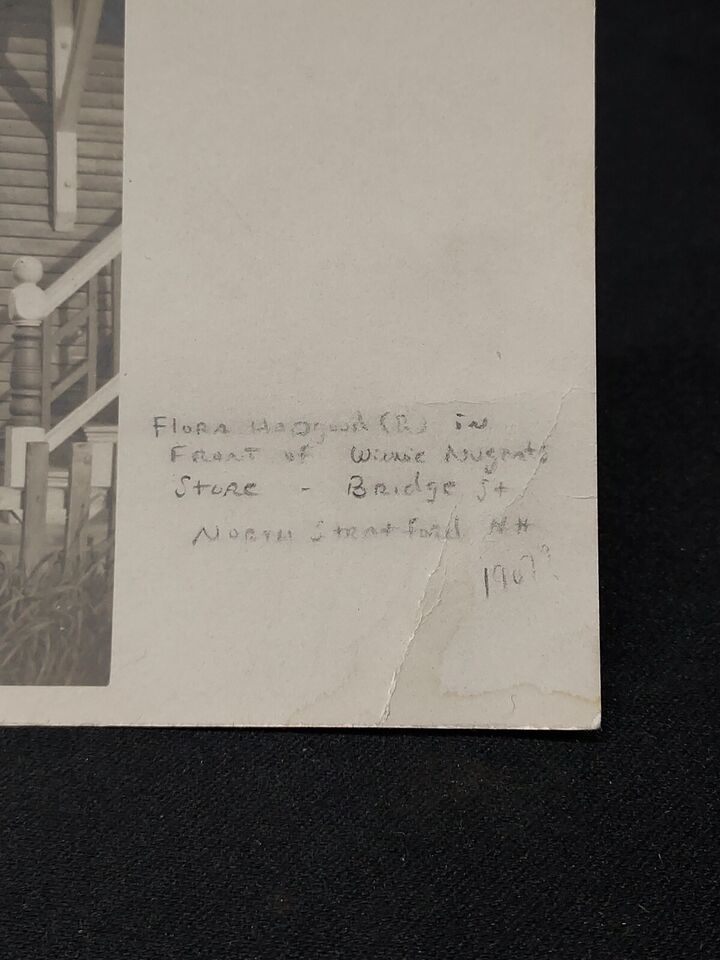 Flora Hapgood (R) in
Front of Winnie Nugents
Store - Bridge St
North Stratford NH
1907?